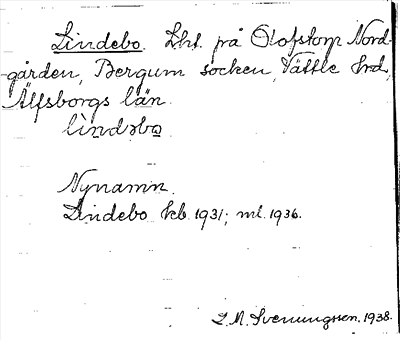 Lindebo. Lht. på Olofstorp Nord-
gården, Bergum socken, Vättle hrd,
Älfsborgs län.
lìndəbo
Nynamn.
Lindebo kb 1931; ml. 1936.
L. M. Svenungssen. 1938.